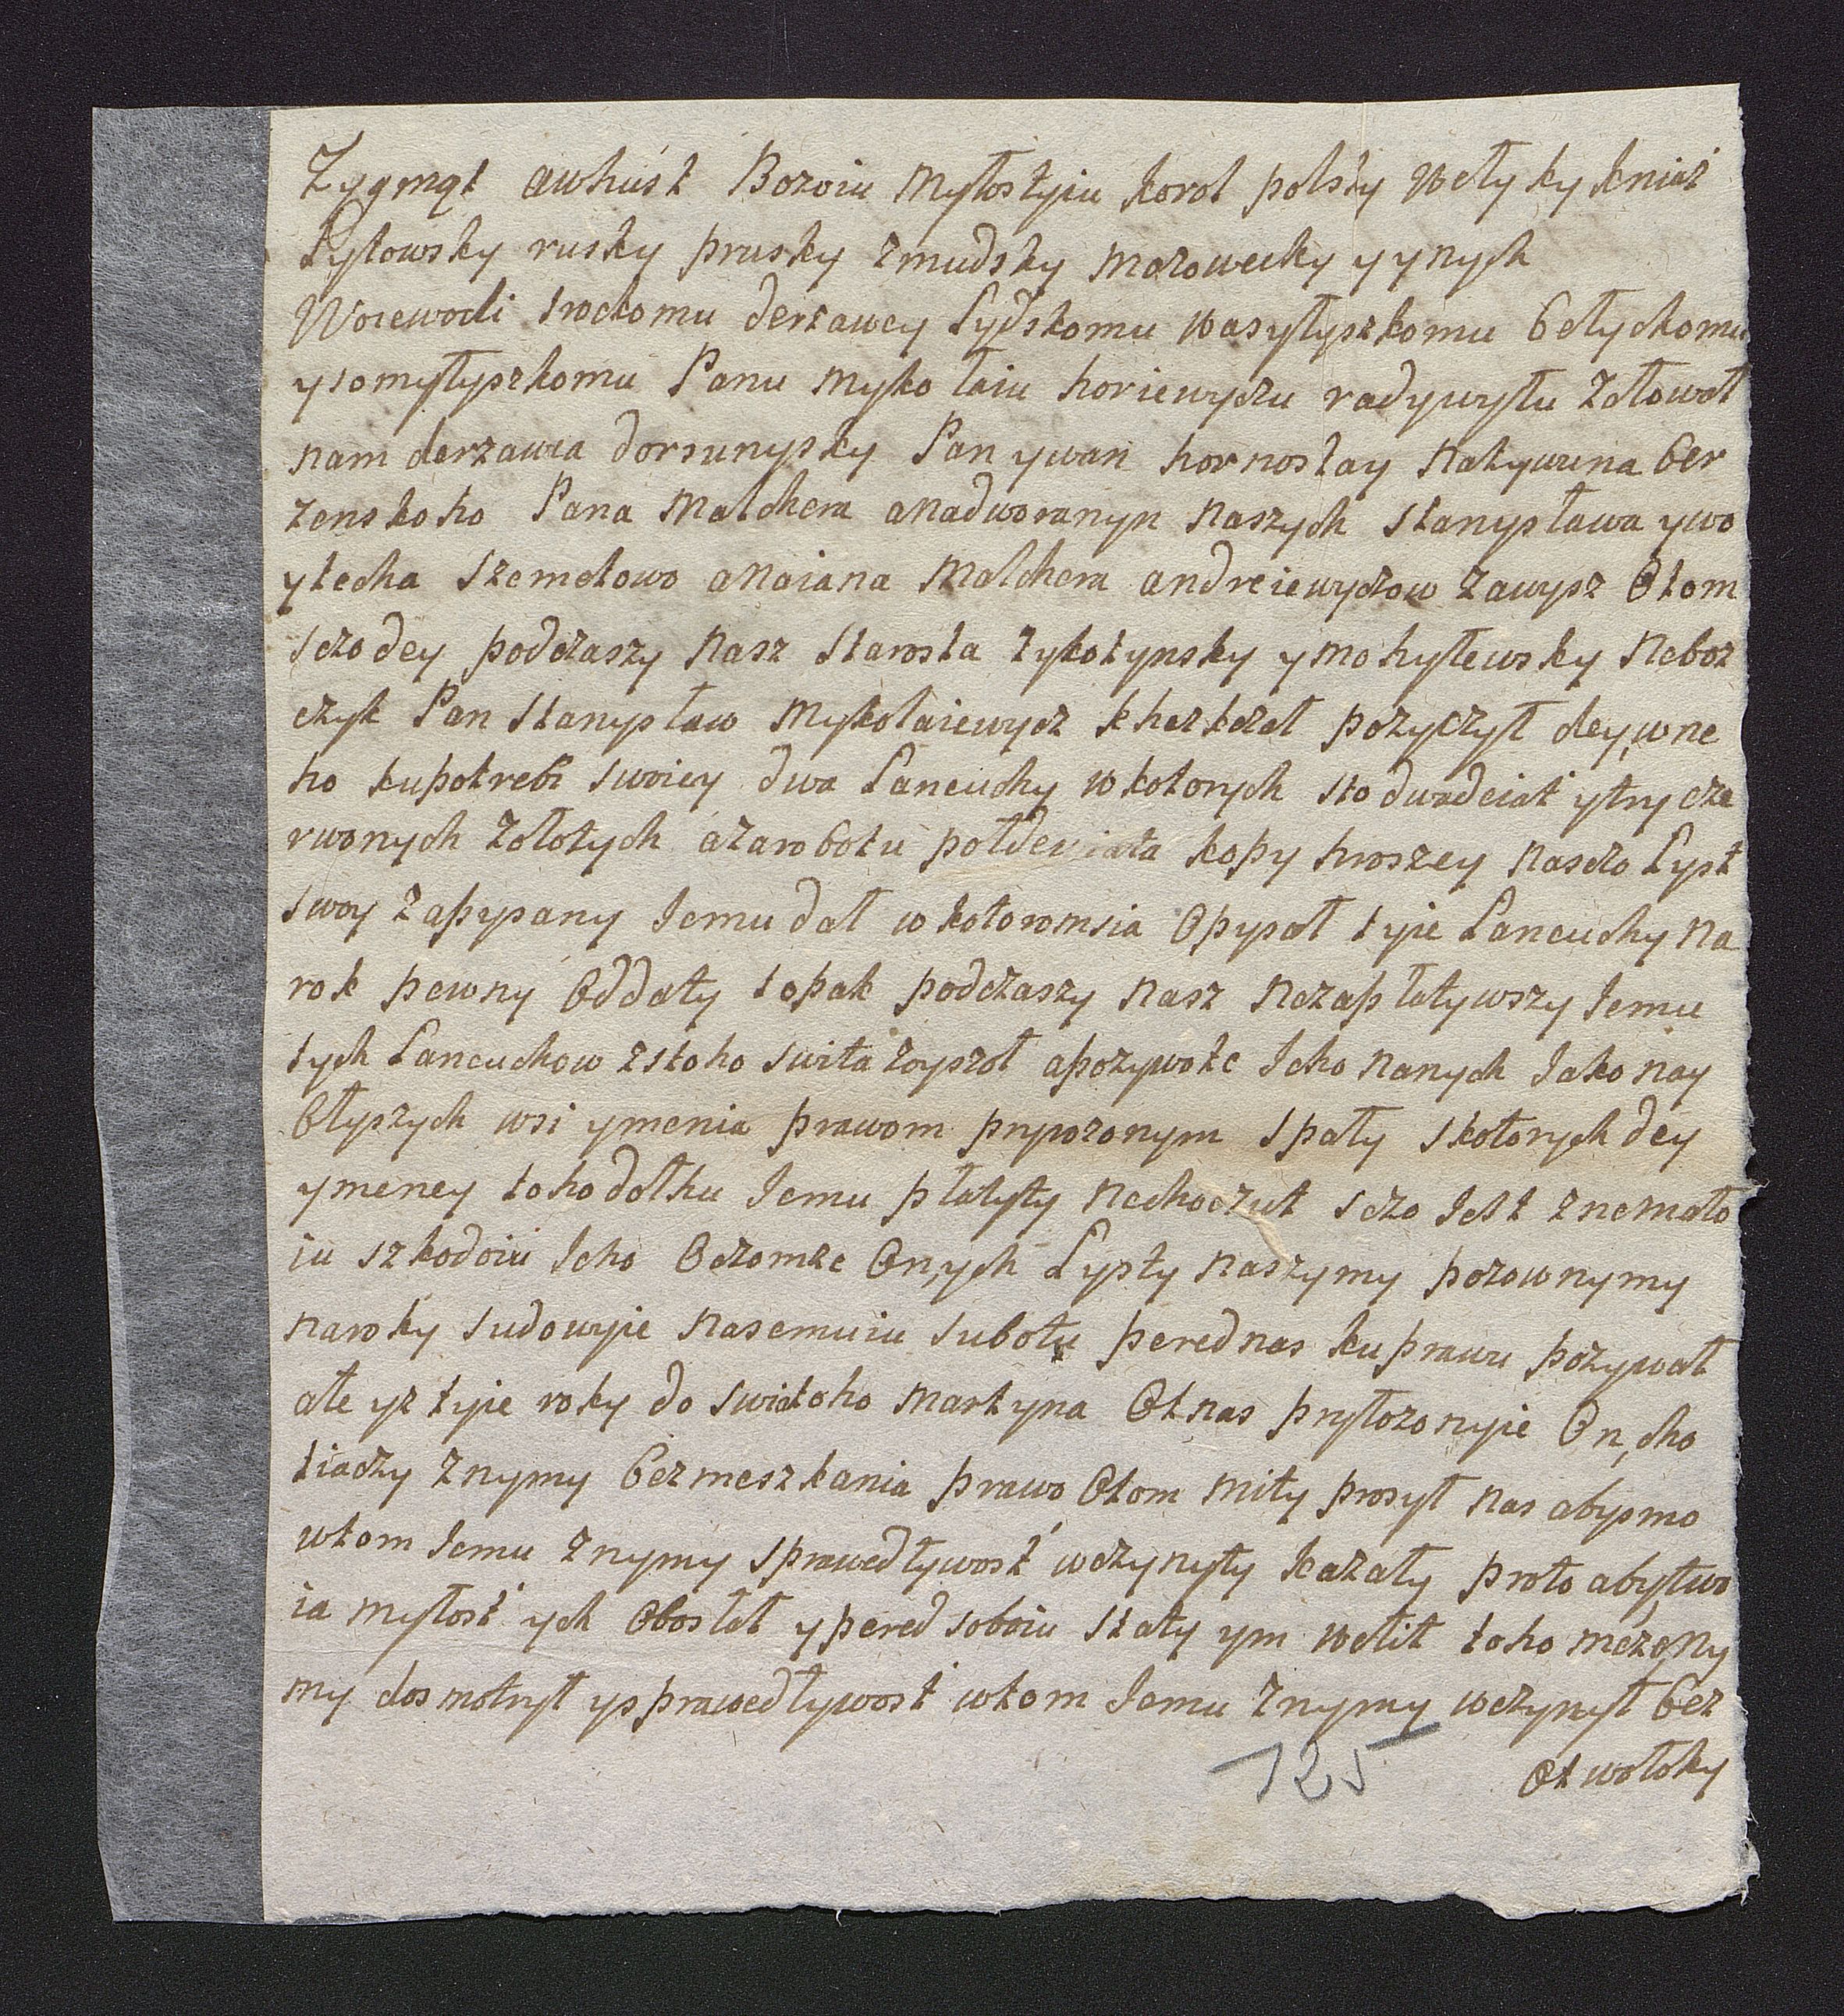 Zygmąt awhust Bozoiu Myłostyiu korol polsky Wełyky kniaź
Lytowsky rusky prusky zmudsky mazowecky y ynych
Woiewodi trockomu derzawcy Lydskomu wasyłyszkomu bełyckomu
y somyłyszkomu Panu Mykołaiu horiewyczu radywyłu żałował
nam derzawca dorsunysky Pan ywan hornostay Natywuna ber
zenskoho Pana Malchera anadworanyn naszych Stanysława ywo
ytecha Szemetowo anaiana Malchera andreiewyczow zawysz Otom
sczo dey podczaszy nasz Starosta tykotynsky y mohylewsky Neboz
czyk Pan Stanysław Mykołaiewycz khezkdał pożyczył dey wne
ho kupotrebi swoiey dwa Lancuchy w kotorych sto dwadciat ytry cze
rwonych zołotych azarobotu połdewiata kopy hroszey nasczo Lyst
swoy zapysany Jemu dał w kotoromsia Opysał tyie Lancuchy na
rok pewny Oddaty topak podczaszy nasz Nezapłatywszy Jemu
tych Lancuchow zstoho swita zoyszoł apozywotc Jeho nanych Jako nay
błyszych wsi ymenia prawom pryrozonym spały skotorych dey
ymeney toho dołhu Jemu płatyty nechoczut sczo Jest znemało
iu szkodoiu Jeho Oczomże Onych Lysty naszymy pozownymy
naroky sudowyie nasemuiu subotu perednas kuprawu pozywał
ałe yz tyie roky do swiatoho Martyna Otnas pryłozonyie On, cho
tiaczy znymy bezmeszkania prawo Otom mity prosył nas abysmo
wtom Jemu znymy sprawedływost' wczynyty kazały proto abytwo
ia myłost' ych Obosłał ypered soboiu staty ym wełił toho mezony
my dosmotrył ysprawedływost' wtom Jemu znymy wczynył bez
Otwołoky
125